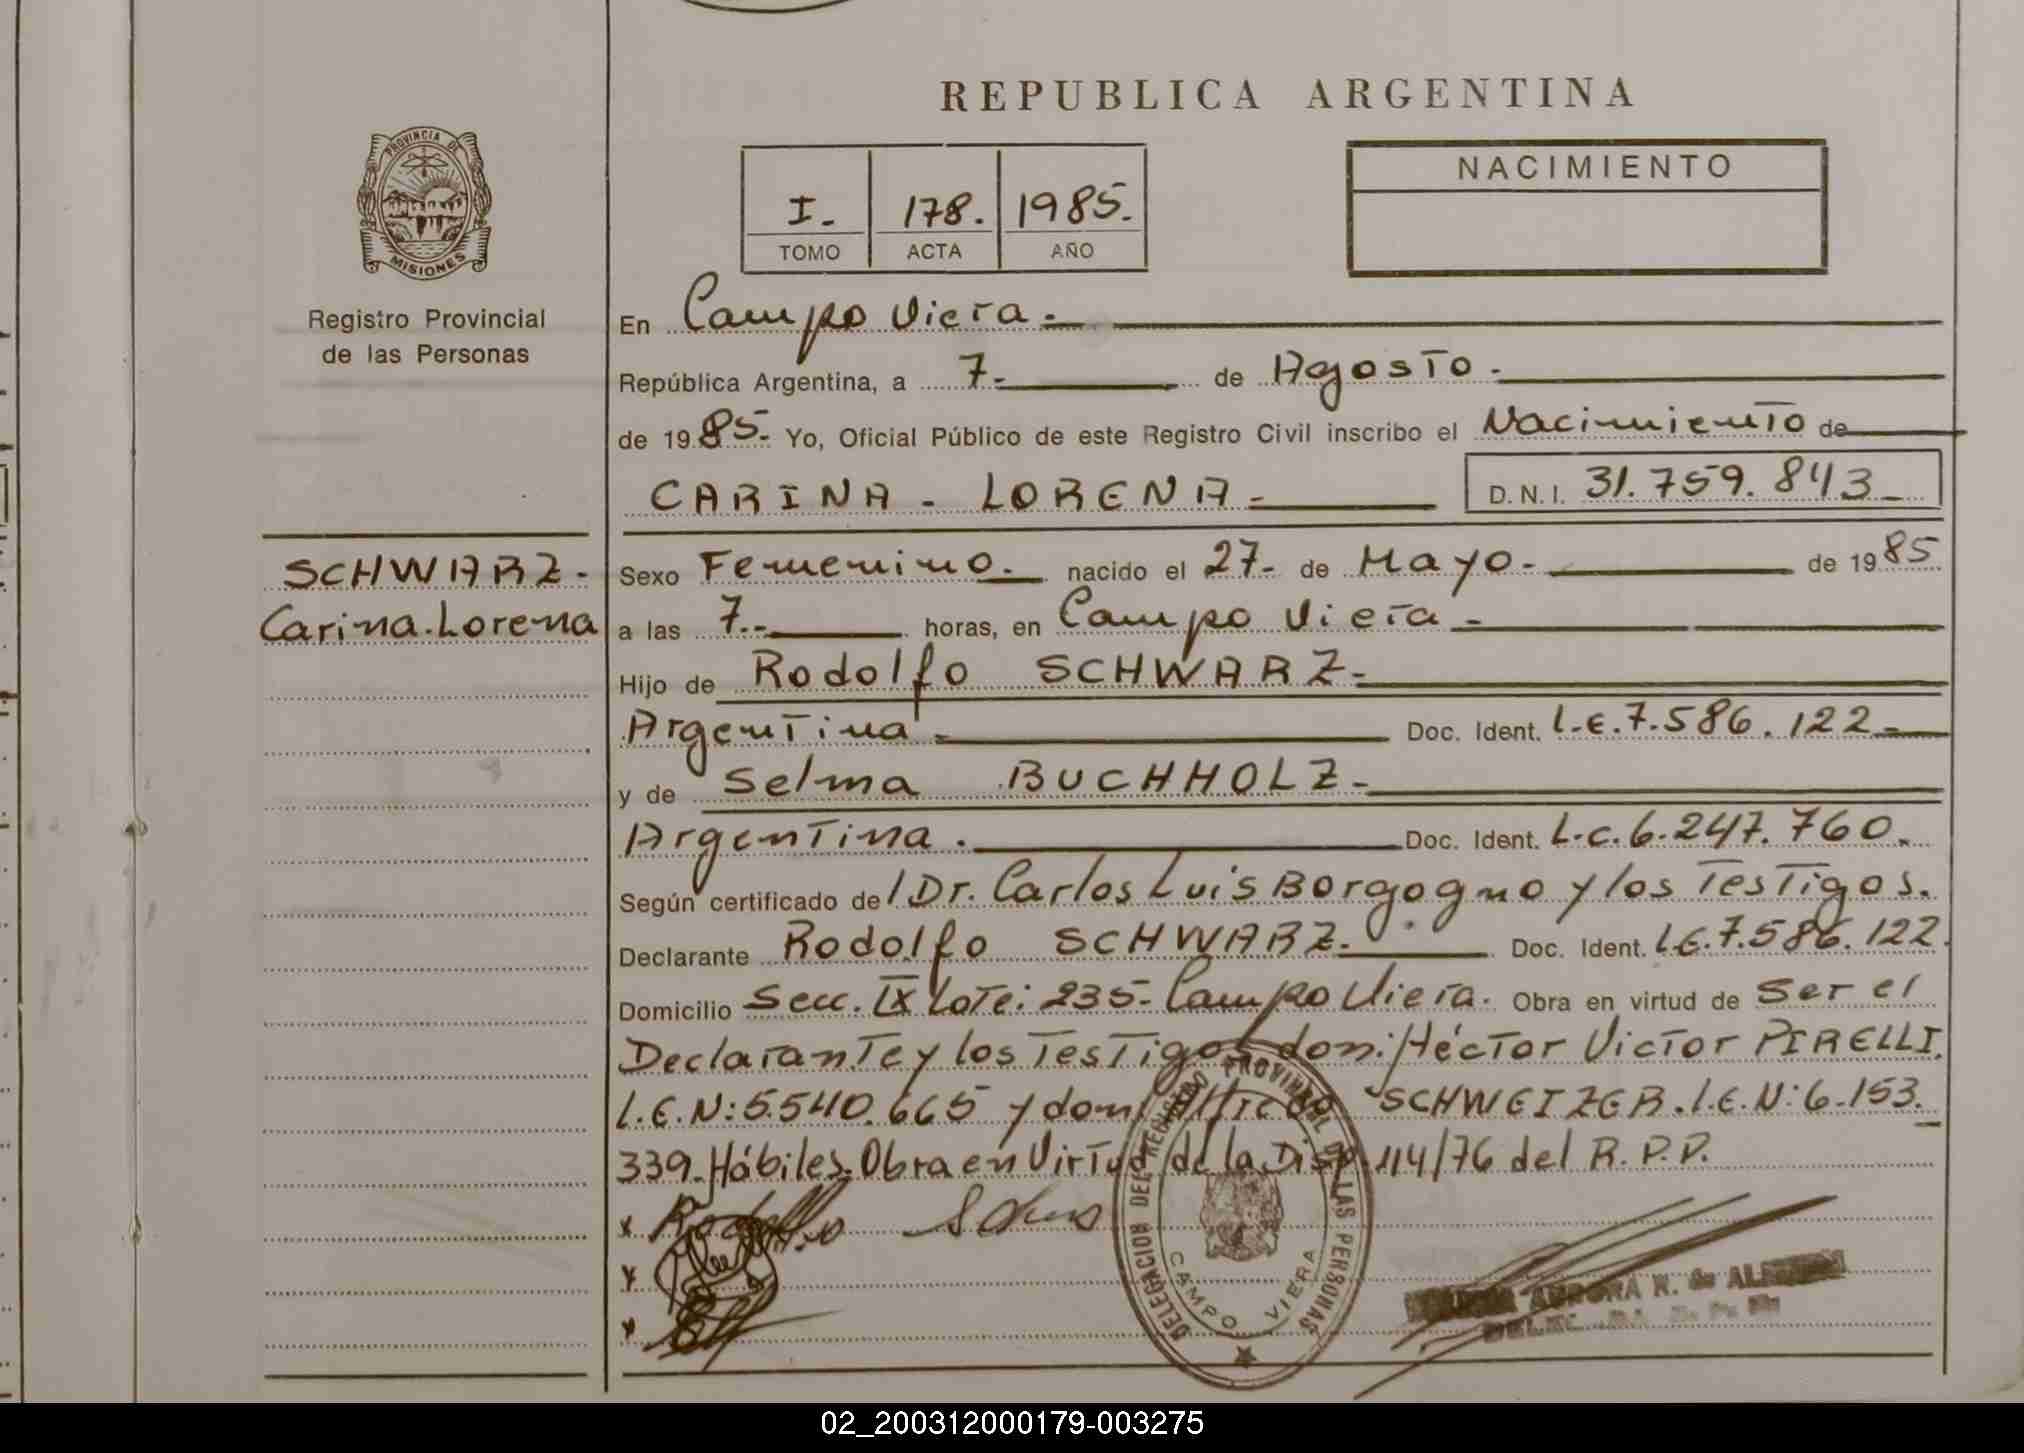 REPUBLICA ARGENTINA
PROVINCIA DE
MISIONES
Registro Provincial
de las Personas
I.-
178.
1985.-
TOMO
ACTA
AÑO
NACIMIENTO
En Campo Viera.-
República Argentina, a 7.- de Agosto.-
de 1985.- Yo, Oficial Público de este Registro Civil inscribo el Nacimiento de
CARINA - LORENA.-
D.N.I. 31.759.843.-
SCHWARZ.-
Carina.Lorena
Sexo Femenino.- nacido el 27.- de Mayo.- de 1985
a las 7.- horas, en Campo Viera.-
Hijo de Rodolfo SCHWARZ.-
Argentina.- Doc. Ident. L.E.7.586.122.-
y de Selma BUCHHOLZ.-
Argentina.- Doc. Ident. L.C.6.247.760.
Según certificado del Dr. Carlos Luis Borgogno y los Testigos.
Declarante Rodolfo SCHWARZ.- Doc. Ident. L.E.7.586.122.
Domicilio Secc. IX Lote: 235- Campo Viera. Obra en virtud de Ser el
Declarante y los Testigos don: Héctor Victor PIRELLI.
L.E.N: 5.540.665 y don: SCHWEIZER.L.E.N: 6.153.
339.Hábiles.Obra en Virtud de la Disp. 114/76 del R.P.P.
Rodolfo
DELEGACION DEL REGISTRO PROVINCIAL DE LAS PERSONAS
CAMPO VIERA
AURORA N. de
02_200312000179-003275